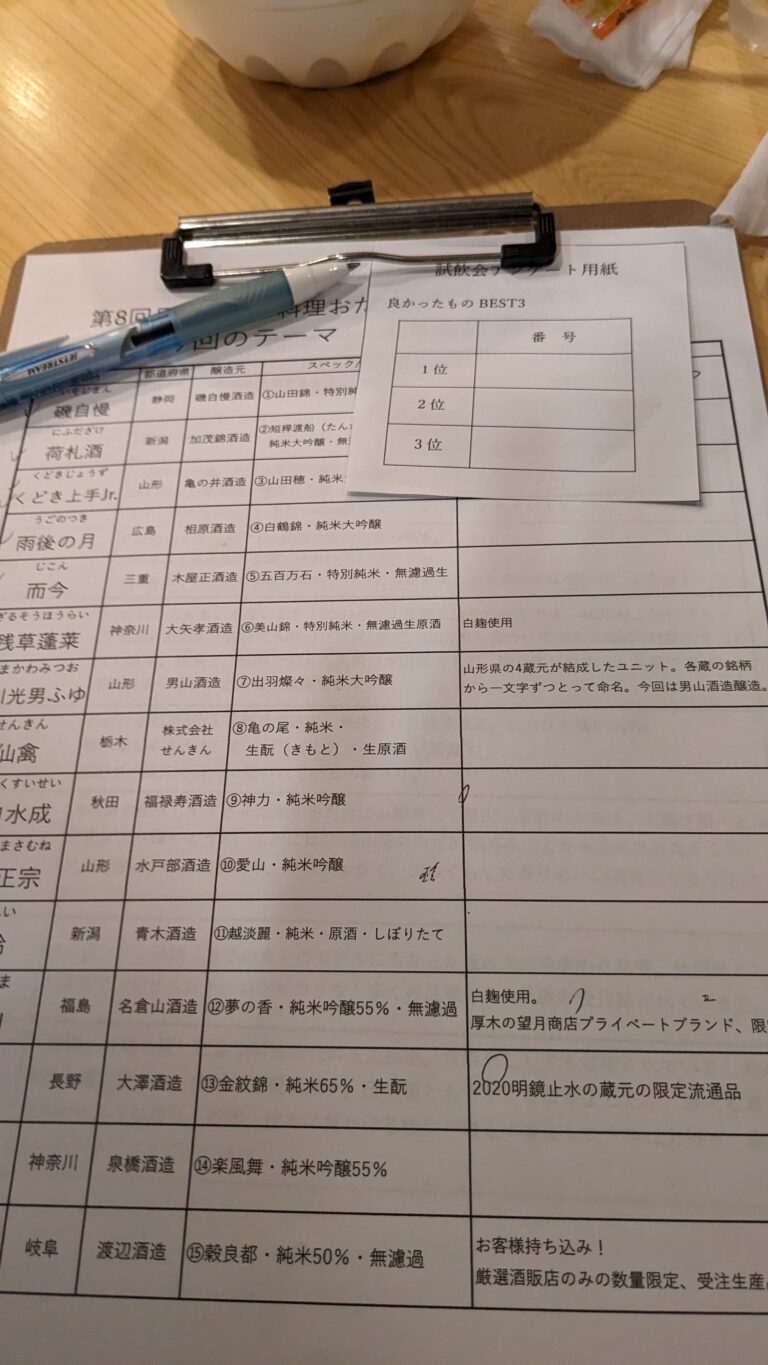 試飲会アンケート用紙
良かったもの BEST3
番 号
1 位
2 位
3 位
第8回
料理おた
回のテーマ
JETSTREAM
都道府県 醸造元 スペック
いそじまん
磯自慢 静岡 磯自慢酒造 ①山田錦・特別純
にふだざけ
荷札酒 新潟 加茂錦酒造 ②短稈渡船（たんか
純米大吟醸・無
くどきじょうず
くどき上手Jr. 山形 亀の井酒造 ③山田穂・純米
うごのつき
雨後の月 広島 相原酒造 ④白鶴錦・純米大吟醸
じこん
而今 三重 木屋正酒造 ⑤五百万石・特別純米・無濾過生
ざるそうほうらい
残草蓬莱 神奈川 大矢孝酒造 ⑥美山錦・特別純米・無濾過生原酒 白麹使用
まかわみつお
川光男ふゆ 山形 男山酒造 ⑦出羽燦々・純米大吟醸 山形県の4蔵元が結成したユニット。各蔵の銘柄
から一文字ずつとって命名。今回は男山酒造醸造。
せんきん
仙禽 栃木 株式会社 ⑧亀の尾・純米・
せんきん 生酛（きもと）・生原酒
くすいせい
水成 秋田 福禄寿酒造 ⑨神力・純米吟醸
まさむね
正宗 山形 水戸部酒造 ⑩愛山・純米吟醸
い
新潟 青木酒造 ⑪越淡麗・純米・原酒・しぼりたて
ま
福島 名倉山酒造 ⑫夢の香・純米吟醸55%・無濾過 白麹使用。
厚木の望月商店プライベートブランド、限
長野 大澤酒造 ⑬金紋錦・純米65%・生酛 2020明鏡止水の蔵元の限定流通品
神奈川 泉橋酒造 ⑭楽風舞・純米吟醸55%
岐阜 渡辺酒造 ⑮穀良都・純米50%・無濾過 お客様持ち込み！
厳選酒販店のみの数量限定、受注生産